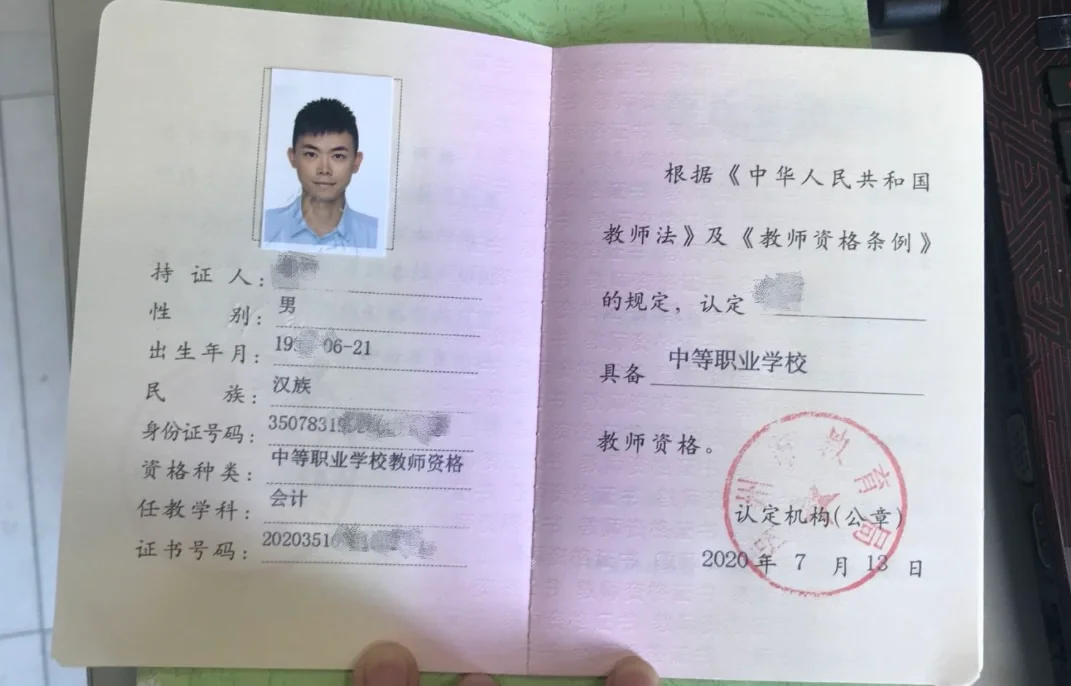 持证人:
性别: 男
出生年月: 19 06-21
民族: 汉族
身份证号码: 35078319
资格种类: 中等职业学校教师资格
任教学科: 会计
证书号码: 2020351
根据《中华人民共和国
教师法》及《教师资格条例》
的规定, 认定
具备 中等职业学校
教师资格。
州 教育局
认定机构(公章)
2020年 7 月 13 日